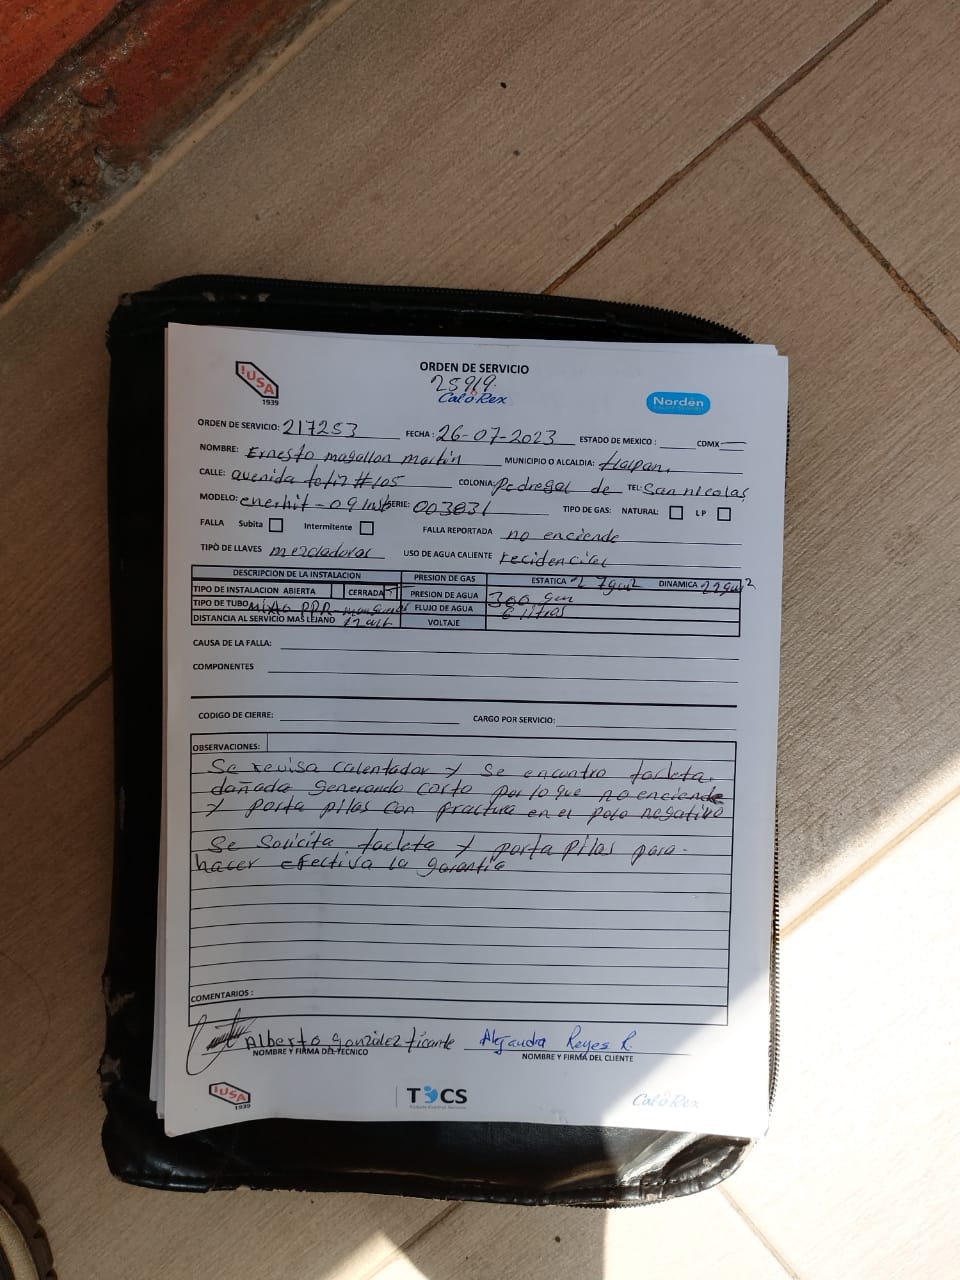 ORDEN DE SERVICIO
IUSA
1939
25919.
CaloRex
Norden
ORDEN DE SERVICIO: 217253 FECHA: 26-07-2023 ESTADO DE MEXICO: CDMX
NOMBRE: Ernesto magallon martin MUNICIPIO O ALCALDIA: tlalpan.
CALLE: avenida #105 COLONIA: Pedregal de TEL: San nicolas
MODELO: enerhit - 09 SERIE: 003831 TIPO DE GAS: NATURAL: LP
FALLA Subita Intermitente FALLA REPORTADA no enciende
TIPO DE LLAVES mezcladoras USO DE AGUA CALIENTE recidencial
DESCRIPCION DE LA INSTALACION PRESION DE GAS ESTATICA DINAMICA
TIPO DE INSTALACION ABIERTA CERRADA PRESION DE AGUA 300
TIPO DE TUBO mixto PPR- FLUJO DE AGUA 6 litros
DISTANCIA AL SERVICIO MAS LEJANO VOLTAJE
CAUSA DE LA FALLA:
COMPONENTES
CODIGO DE CIERRE: CARGO POR SERVICIO:
OBSERVACIONES:
Se revisa calentador y se encontro tarleta.
dañada generando corto por lo que no enciende
y porta pilas con fractura en el polo negativo
Se Solicita tarleta y porta pilas para.
hacer efectiva la garantía
COMENTARIOS :
Alberto González ticante Alejandra Reyes R.
NOMBRE Y FIRMA DEL TECNICO NOMBRE Y FIRMA DEL CLIENTE
IUSA
1939
TCS
CaloRex